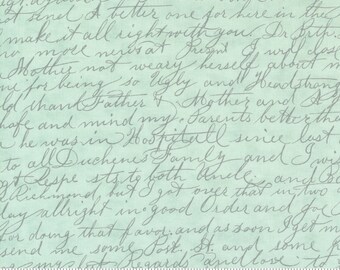 not send A better one for here in the
make it all right with you. Dr
no more news at Present I will close
Mother not weary herself about m
me for being so Ugly and Headstrong
Id thank Father & Mother and A
safe and mind my Parents better th
he was in Hospitall since last
to all Duchenes Family and I wi
Respe sts to both Uncle and
Richmond, but I got over that in two
day allright in good Order and
for doing that favor and as soon I get m
send me some Post St and some
my best Regards and Love to